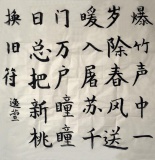 爆竹声中一
岁除春风送
暖入屠苏千
门万户瞳瞳
日总把新桃
换旧符